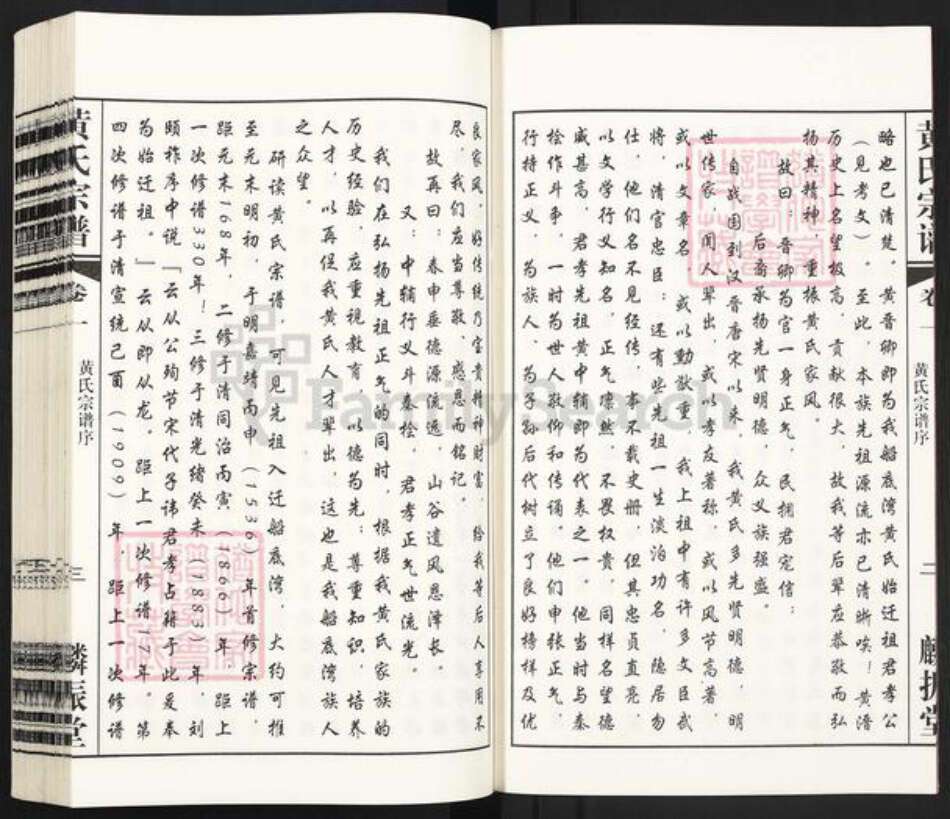 黄氏宗谱
卷一
黄氏宗谱序
二
麟振堂
略也已清楚。黄晋卿即为我船底湾黄氏始迁祖君孝公
（见考文）。至此，本族先祖源流亦已清晰唉！黄潛
历史上名望极高，贡献很大，故我等后辈应恭敬而弘
扬其精神，重振黄氏家风。
故曰：晋卿为官一身正气，民拥君宠信：
后裔承扬先贤明德，众义族强盛。
自战国到汉晋唐宋以来，我黄氏多先贤明德，明
世传家，闻人辈出，或以孝友著称，或以风节高著，
或以文章名，或以勳猷重，我上祖中有许多文臣武
将，清官忠臣；还有些先祖一生淡泊功名，隐居勿
仕，他们名不见经传，事不载史册，但其忠贞直亮，
以文学行义知名，正气凛然，不畏权贵，同样名望德
威甚高，君孝先祖黄中辅即为代表之一。他当时与秦
桧作斗争，一时为世人敬仰和传诵。他们申张正气，
行持正义，为族人、为子孙后代树立了良好榜样及优
良家风，好传统乃宝贵精神财富，给我等后人享用不
尽，我们应当尊敬、感恩而铭记。
故再曰：春申垂德源流远，山谷遗风恩泽长。
又：中辅行义斗秦桧，君孝正气世流光。
我们在弘扬先祖正气的同时，根据我黄氏家族的
历史经验，应重视教育，以德为先；尊重知识，培养
人才，以再促我黄氏人才辈出，这也是我船底湾族人
之众望。
研读黄氏宗谱，可见先祖入迁船底湾，大约可推
至元末明初，于明嘉靖丙申（1536）年首修宗谱，
距元末168年，二修于清同治丙寅（1866）年，距上
一次修谱330年！三修于清光绪癸未（1883）年，刘
颐祚序中说『云从公殉节宋代子讳君孝占籍于此爰奉
为始迁祖。』云从即从龙。距上一次修谱17年。第
四次修谱于清宣统己酉（1909）年，距上一次修谱
黄氏宗谱
卷一
黄氏宗谱序
三
麟振堂
FamilySearch